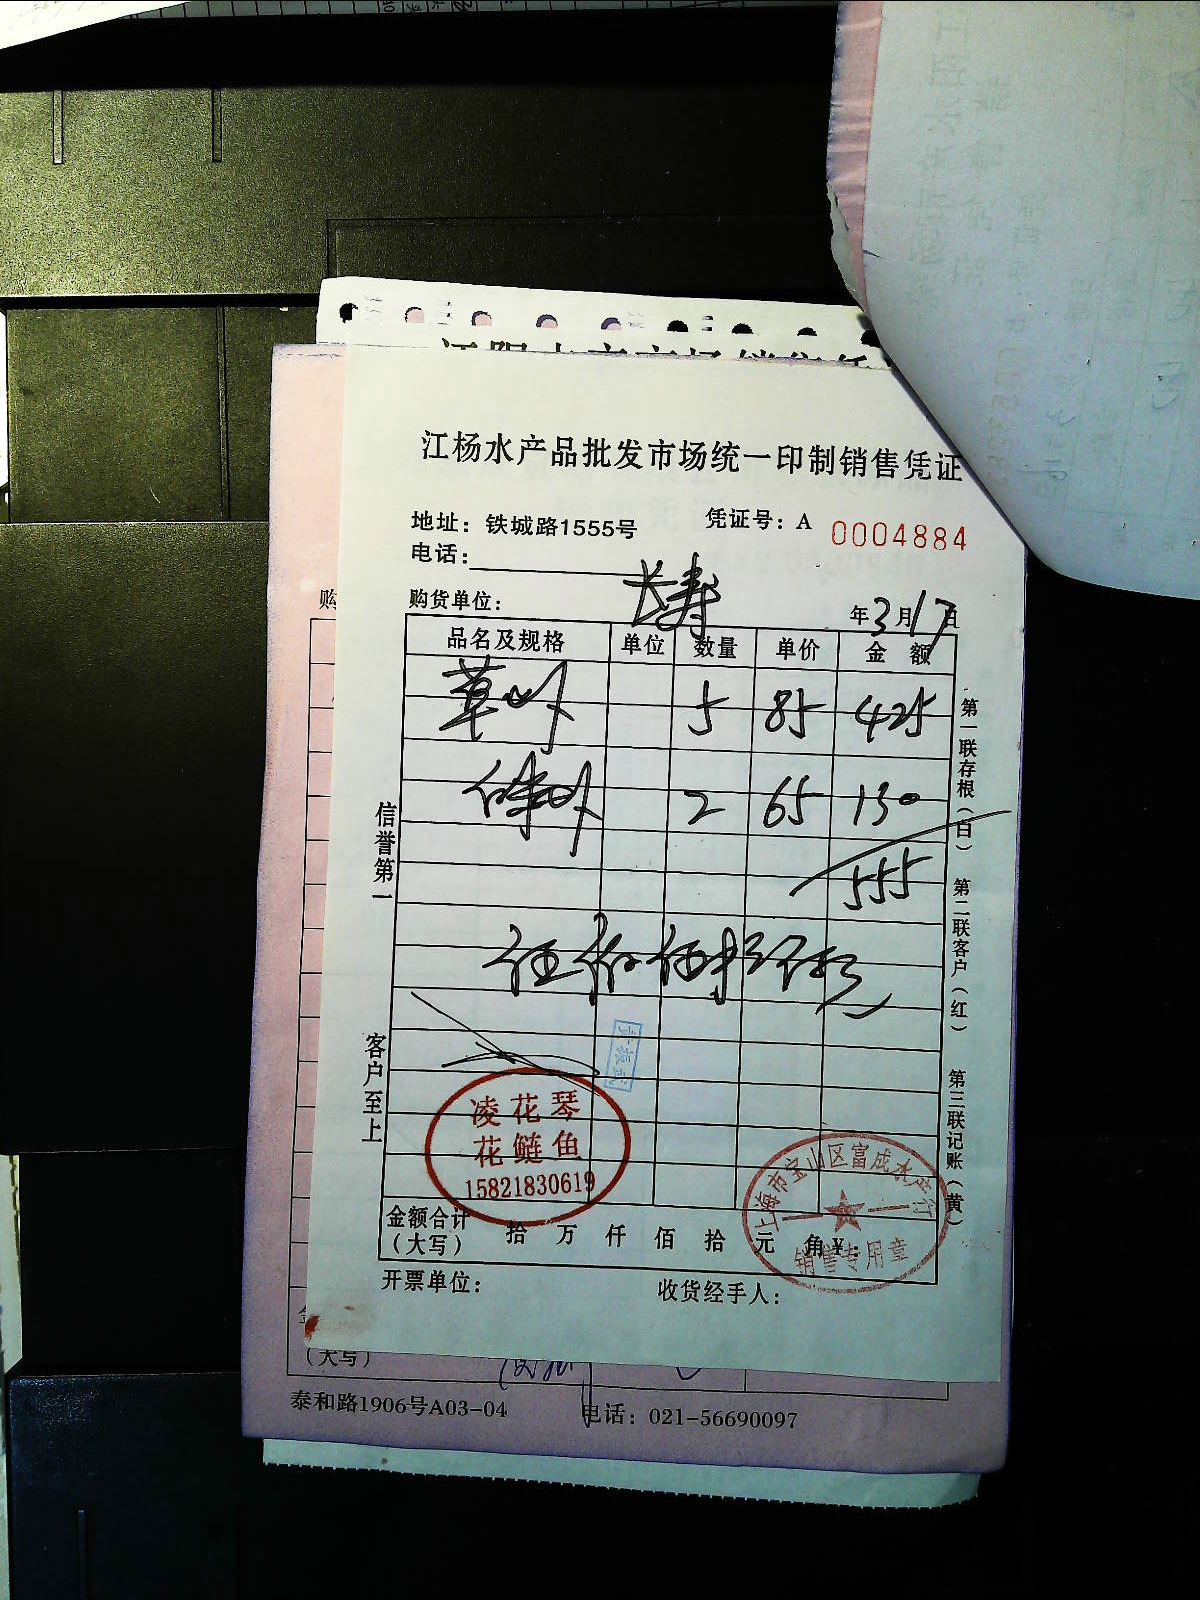 江杨水产品批发市场统一印制销售凭证
地址：铁城路1555号
凭证号：A 0004884
电话：
购货单位： 长寿
年3月17日
品名及规格 单位 数量 单价 金额
5 85 425
2 65 130
555
信誉第一
客户至上
第一联存根（白）
第二联客户（红）
第三联记账（黄）
凌花琴
花鲢鱼
15821830619
上海市宝山区富成水产行
销售专用章
金额合计（大写） 拾 万 仟 佰 拾 元 角 ¥：
开票单位：
收货经手人：
购
（大写）
泰和路1906号A03-04
电话：021-56690097